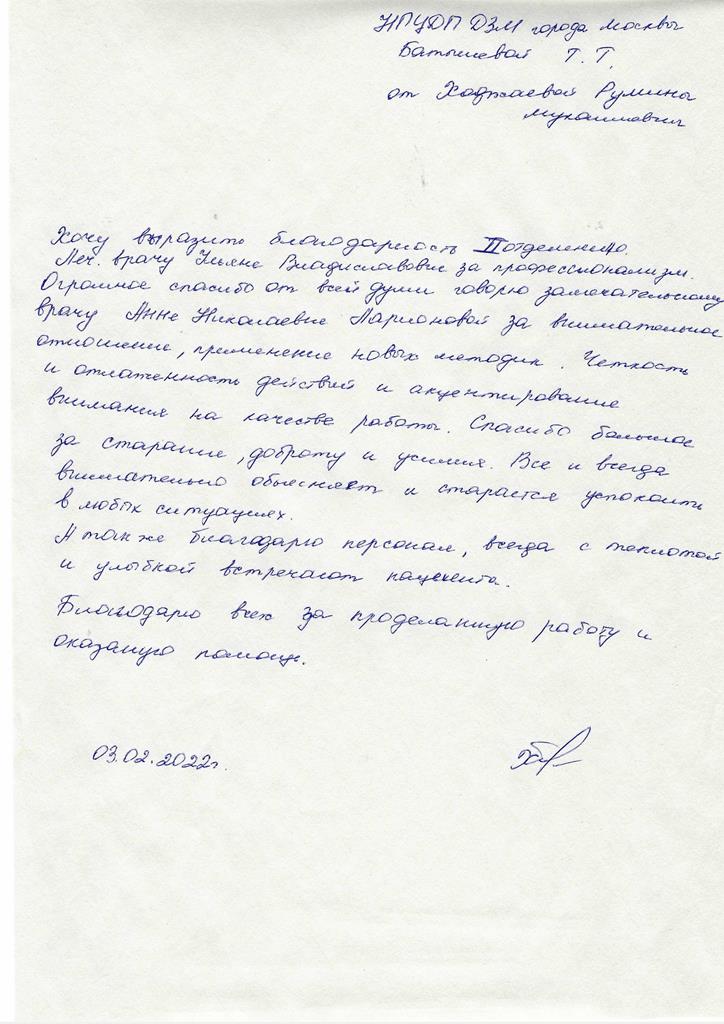 НПЦДП ДЗМ города Москвы
Батышевой Т. Т.
от Хаджаевой Румины
Хочу выразить благодарность II отделению.
Леч. врачу Ульяне Владиславовне за профессионализм.
Огромное спасибо от всей души говорю замечательному
врачу Анне Николаевне Ларионовой за внимательное
отношение, применение новых методик. Четкость
и отлаженность действий и акцентирование
внимания на качестве работы. Спасибо большое
за старание, доброту и усилия. Все и всегда
внимательно объясняет и старается успокоить
в любых ситуациях.
А также благодарю персонал, всегда с теплотой
и улыбкой встречают пациента.
Благодарю всех за проделанную работу и
оказаную помощь.
03.02.2022г.